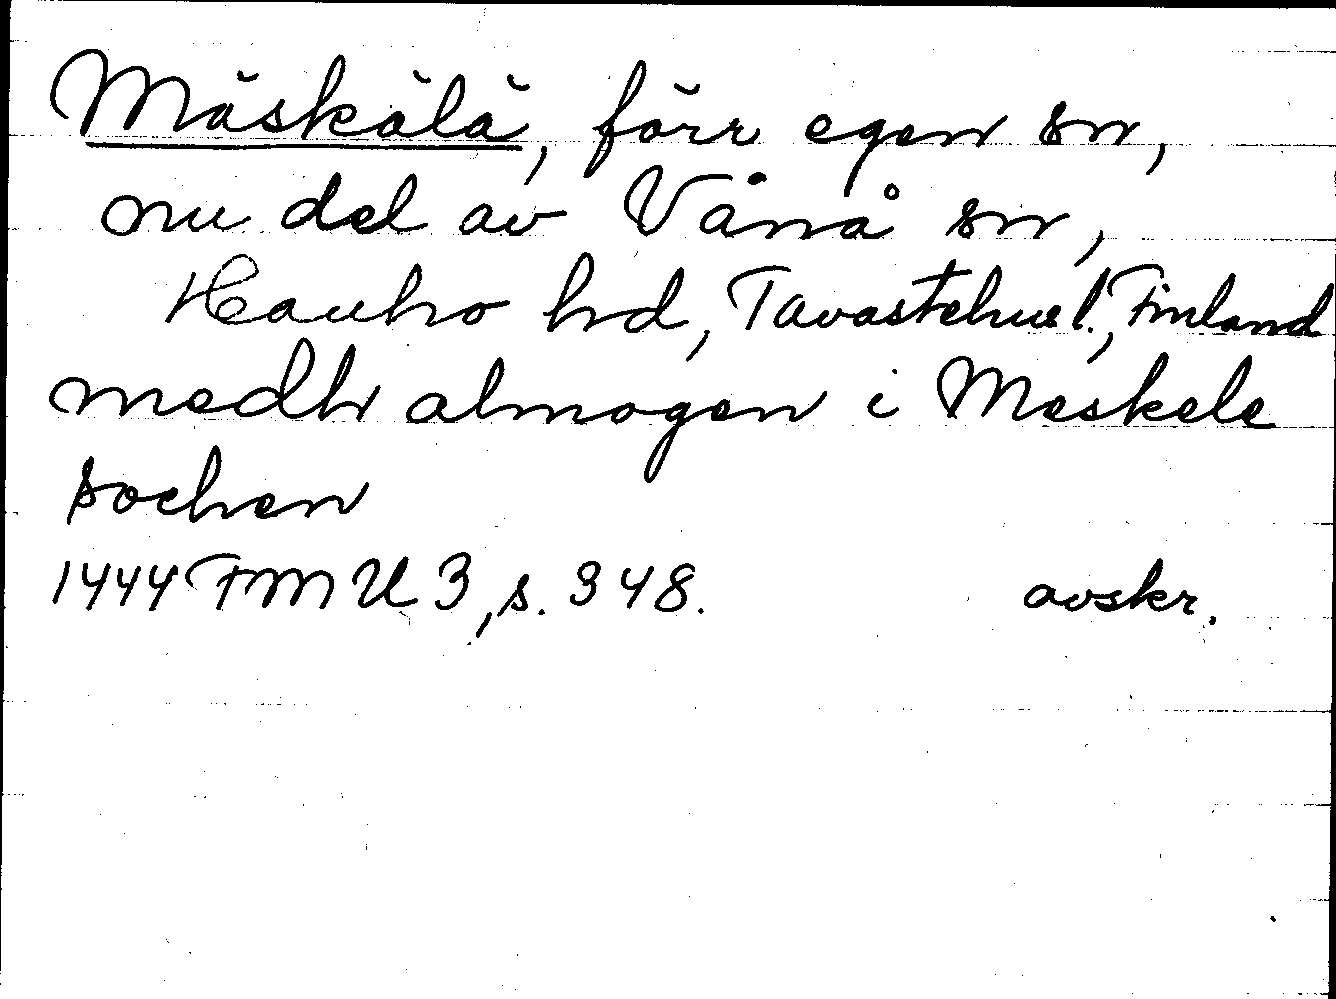 Mäskälä, förr egen sn,
nu del av Vånå sn,
Hauho hd, Tavastehus l., Finland
medh almogen i Meskele
sochen
1444 FMU 3, s. 348. avskr.